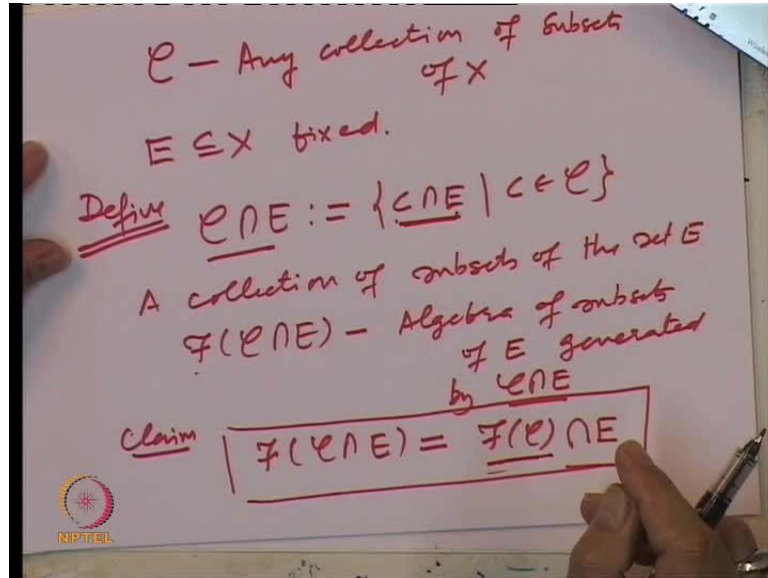 𝒞 – Any collection of subsets
of X
E ⊆ X fixed.
Define 𝒞∩E := {C∩E | C ∈ 𝒞}
A collection of subsets of the set E
ℱ(𝒞∩E) – Algebra of subsets
of E generated
by 𝒞∩E
Claim ℱ(𝒞∩E) = ℱ(𝒞)∩E
NPTEL